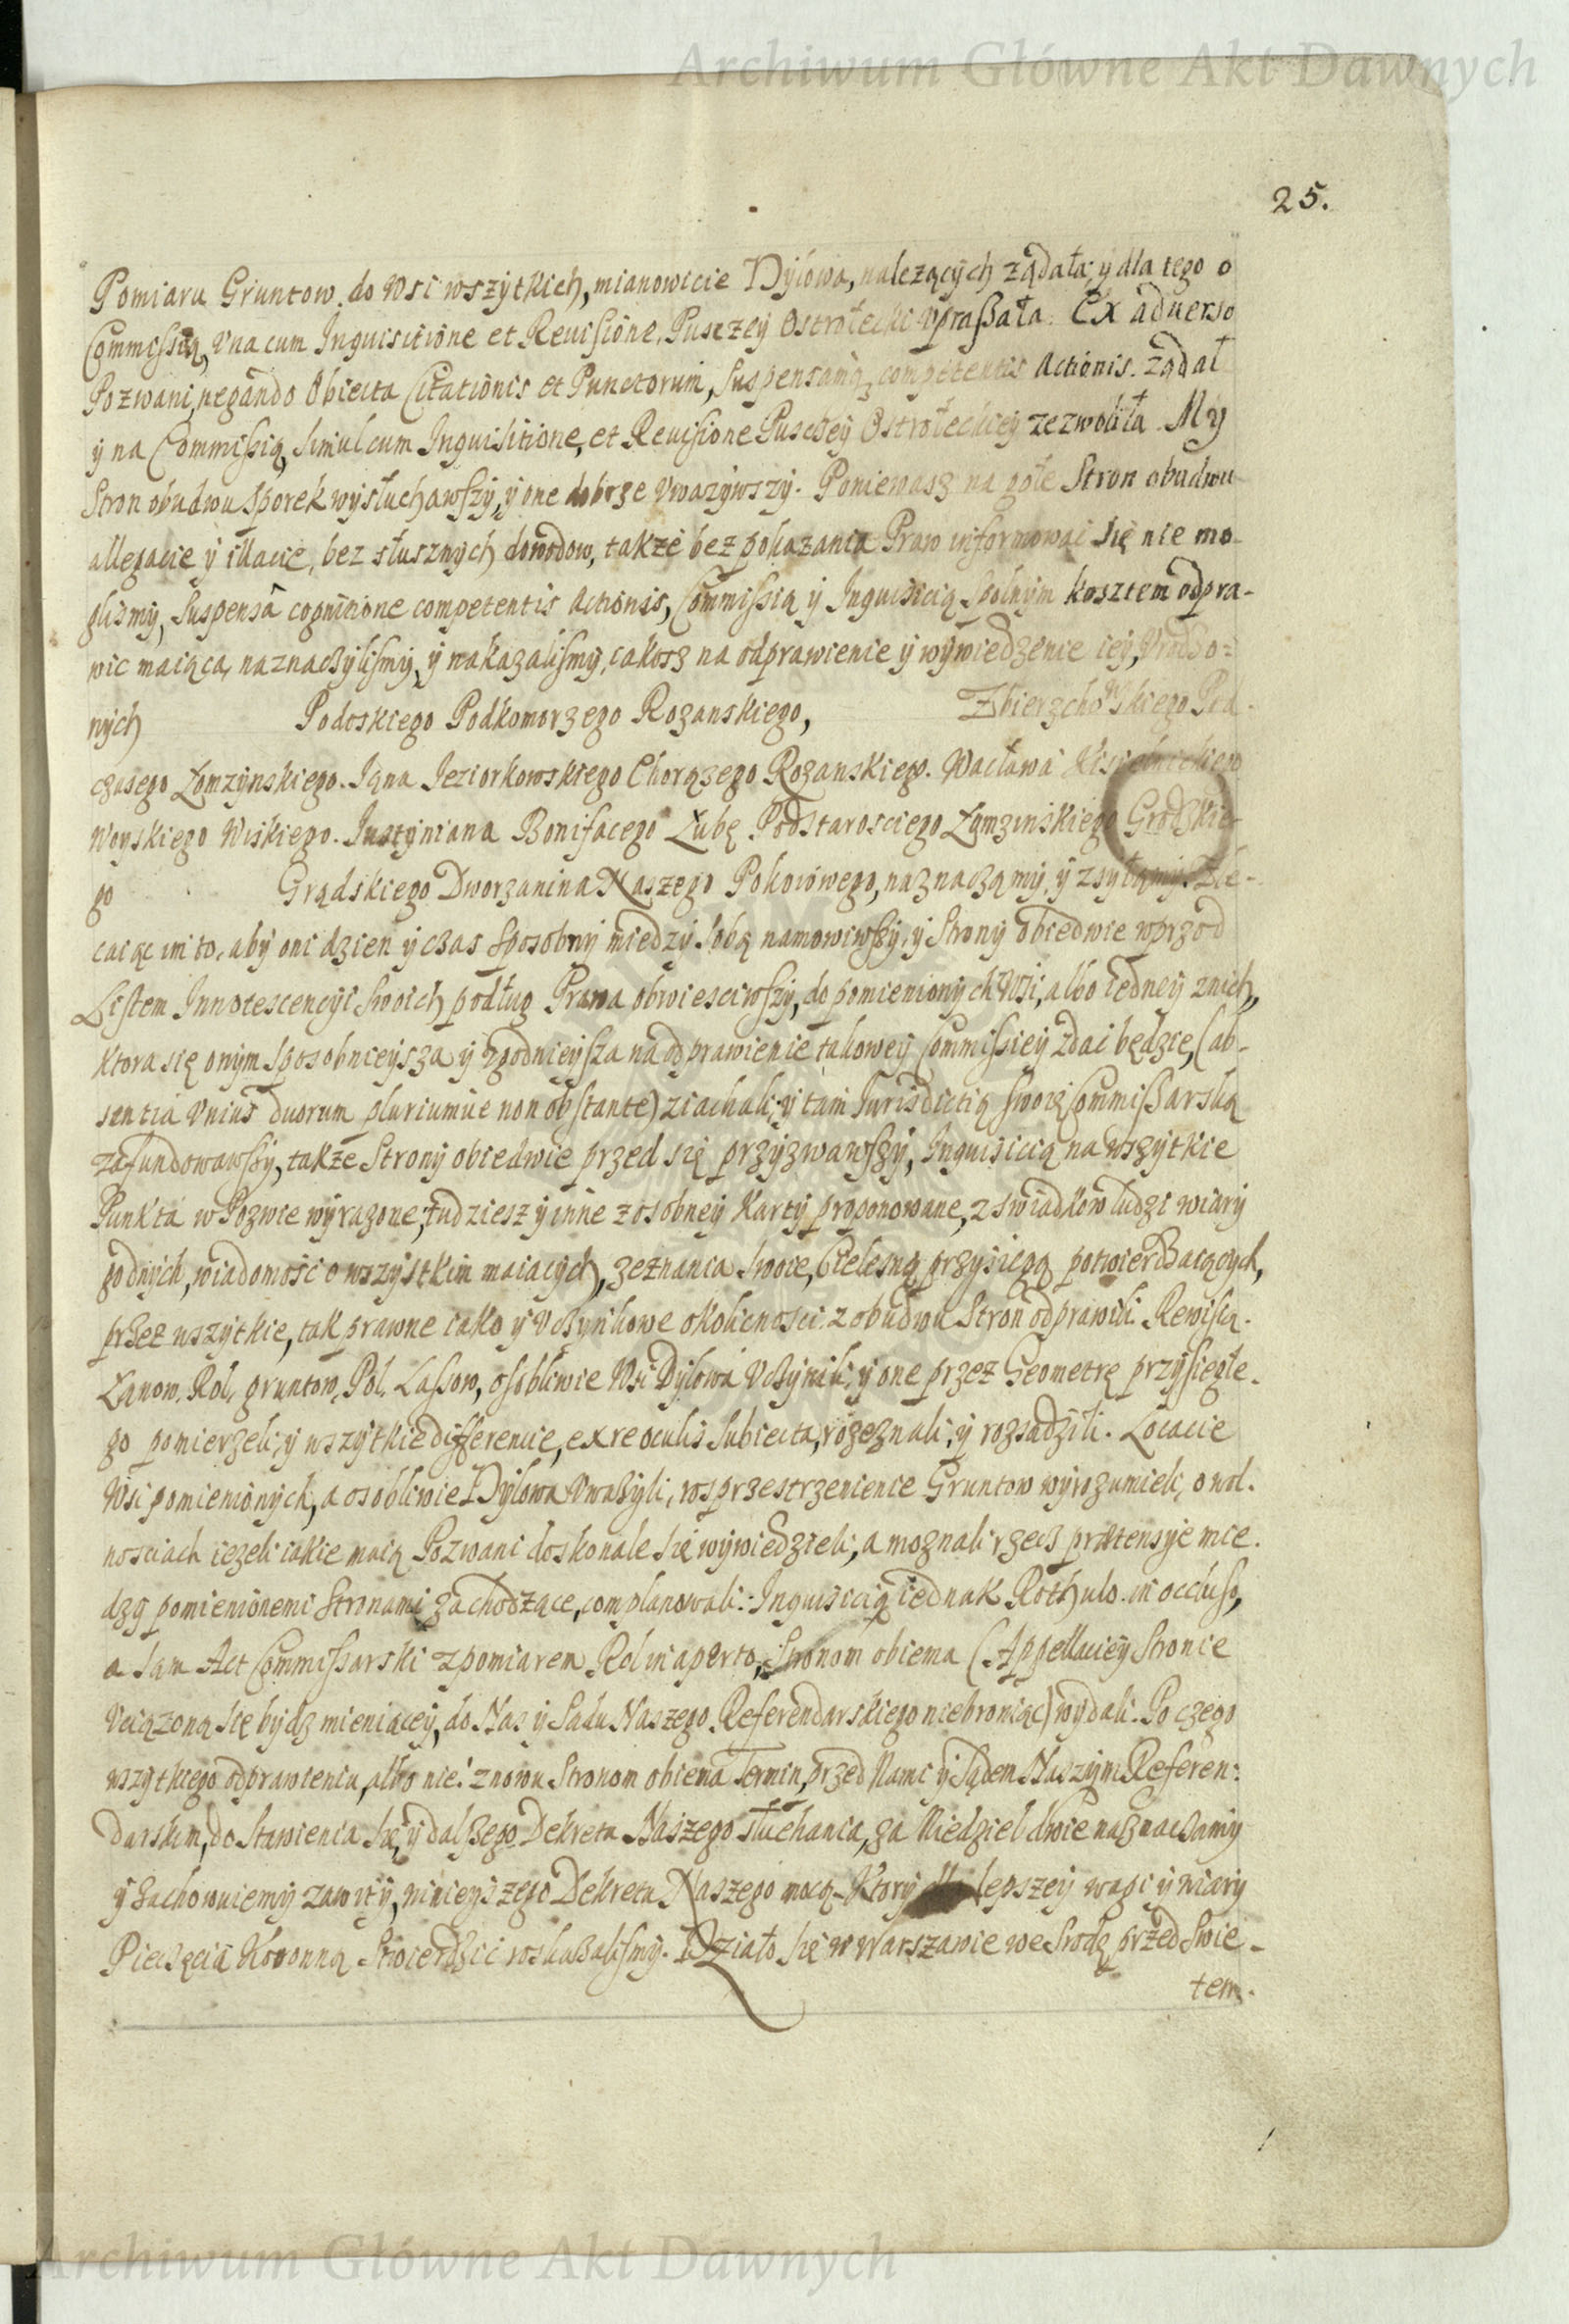 Archiwum Główne Akt Dawnych
25.
Pomiaru Gruntow do Wsi wszytkich, mianowicie Dylowa, należących żądała; y dla tego o
Commissią, Vna cum Inquisitione et Revisione, Puszczey Ostrołecki vpraszała. Ex adverso
Pozwani, negando Obiecta Citationis et Punctorum, Suspensamq competentis Actionis. żądał
y na Commissią, simul cum Inquisitione, et Revisione Pusczey Ostrołeckiey zezwoliła. My
Stron obudwu Sporek wysłuchawszy, y one dobrze Vważywszy. Poniewasz na gołe Stron obudwu
allegacie y illacie, bez słusznych dowodow, także bez pokazania Praw informowac się nie mo-
glismy, Suspensâ cognitione competentis Actionis, Commissią y Inquisicią Spolnym kosztem odpra-
wic maiącą, naznaczylismy, y nakazalismy, iakosz na odprawienie y wywiedzenie iey, Vrodzo=
nych Podoskiego Podkomorzego Rozanskiego, Zbierzchowskiego Pod-
czasego Łomzynskiego. Jana Jeziorkowskiego Chorązego Rozanskiego. Wacława
Woyskiego Wiskiego. Justyniana Bonifacego Łubę Podstarosciego Łomzinskiego Grodzkie-
go Grądskiego Dworzanina Naszego Pokoiowego, naznaczamy, y zsyłamy. Zle-
caiąc im to, aby oni dzien y czas sposobny miedzy sobą namowiwszy, y Strony obiedwie wprzod
Listem Innotescencyi swoich podług Prawa obwiesciwszy, do pomienionych Wsi, albo iedney znich,
ktora się onym sposobnieysza y zgodnieysza na odprawienie takowey Commissiey zdac będzie, (ab-
sentia Vnius duorum pluriumue non obstante) ziachali; y tam Jurisdictią swoię Commissarską
zafundowawszy, także Strony obiedwie przed się przyzwawszy, Inquisicią na wszytkie
Punkta w Pozwie wyrazone, tudziesz y inne z osobney Karty proponowane, z swiadkow ludzi wiary
godnych, wiadomosc o wszystkim maiących, zeznania swoie, Cielesną przysięgą potwierdzaiących,
przez wszytkie, tak prawne iako y Vczynkowe okolicnosci z obudwu Stron odprawili. Rewisią.
Łanow, Rol, gruntow, Pol, Lassow, osobliwie Wsi Dylowa Vczynili, y one przez Geometrę przysiegłe-
go pomierzeli, y wszytkie differencie, ex re oculis subiecta, rozeznali, y rozsądzili. Locacie
Wsi pomienionych, a osobliwie Dylowa Vważyli, rosprzestrzenienie Gruntow wyrozumieli, o wol-
nosciach iezeli iakie maią Pozwani doskonale się wywiedzieli, a moznali rzecz prætensyie mie-
dzy pomienionemi Stronami zachodzące, complanowali: Inquisicią iednak Rothulo in occluso,
a sam Act Commissarski z pomiarem Rol in aperto, Stronom obiema (Appellaciey Stronie
Vciązoną się bydz mieniącey, do Nas y Sądu Naszego Referendarskiego niebroniąc) wydali. Po czego
wszytkiego odprawieniu, albo nie: znowu Stronom obiema Termin, przed Nami y Sądem Naszym Referen:
Darskim, do Stawienia się, y dalszego Dekretu Naszego słuchania, za Niedziel dwie naznaczamy
y zachowuiemy zawity, ninieyszego Dekretu Naszego mocą. Ktory dla lepszey wagi y wiary
Pieczęcią Koronną Stwierdzic roskazalismy. Działo się w Warszawie we Srodę przed Swie-
tem.
Archiwum Główne Akt Dawnych